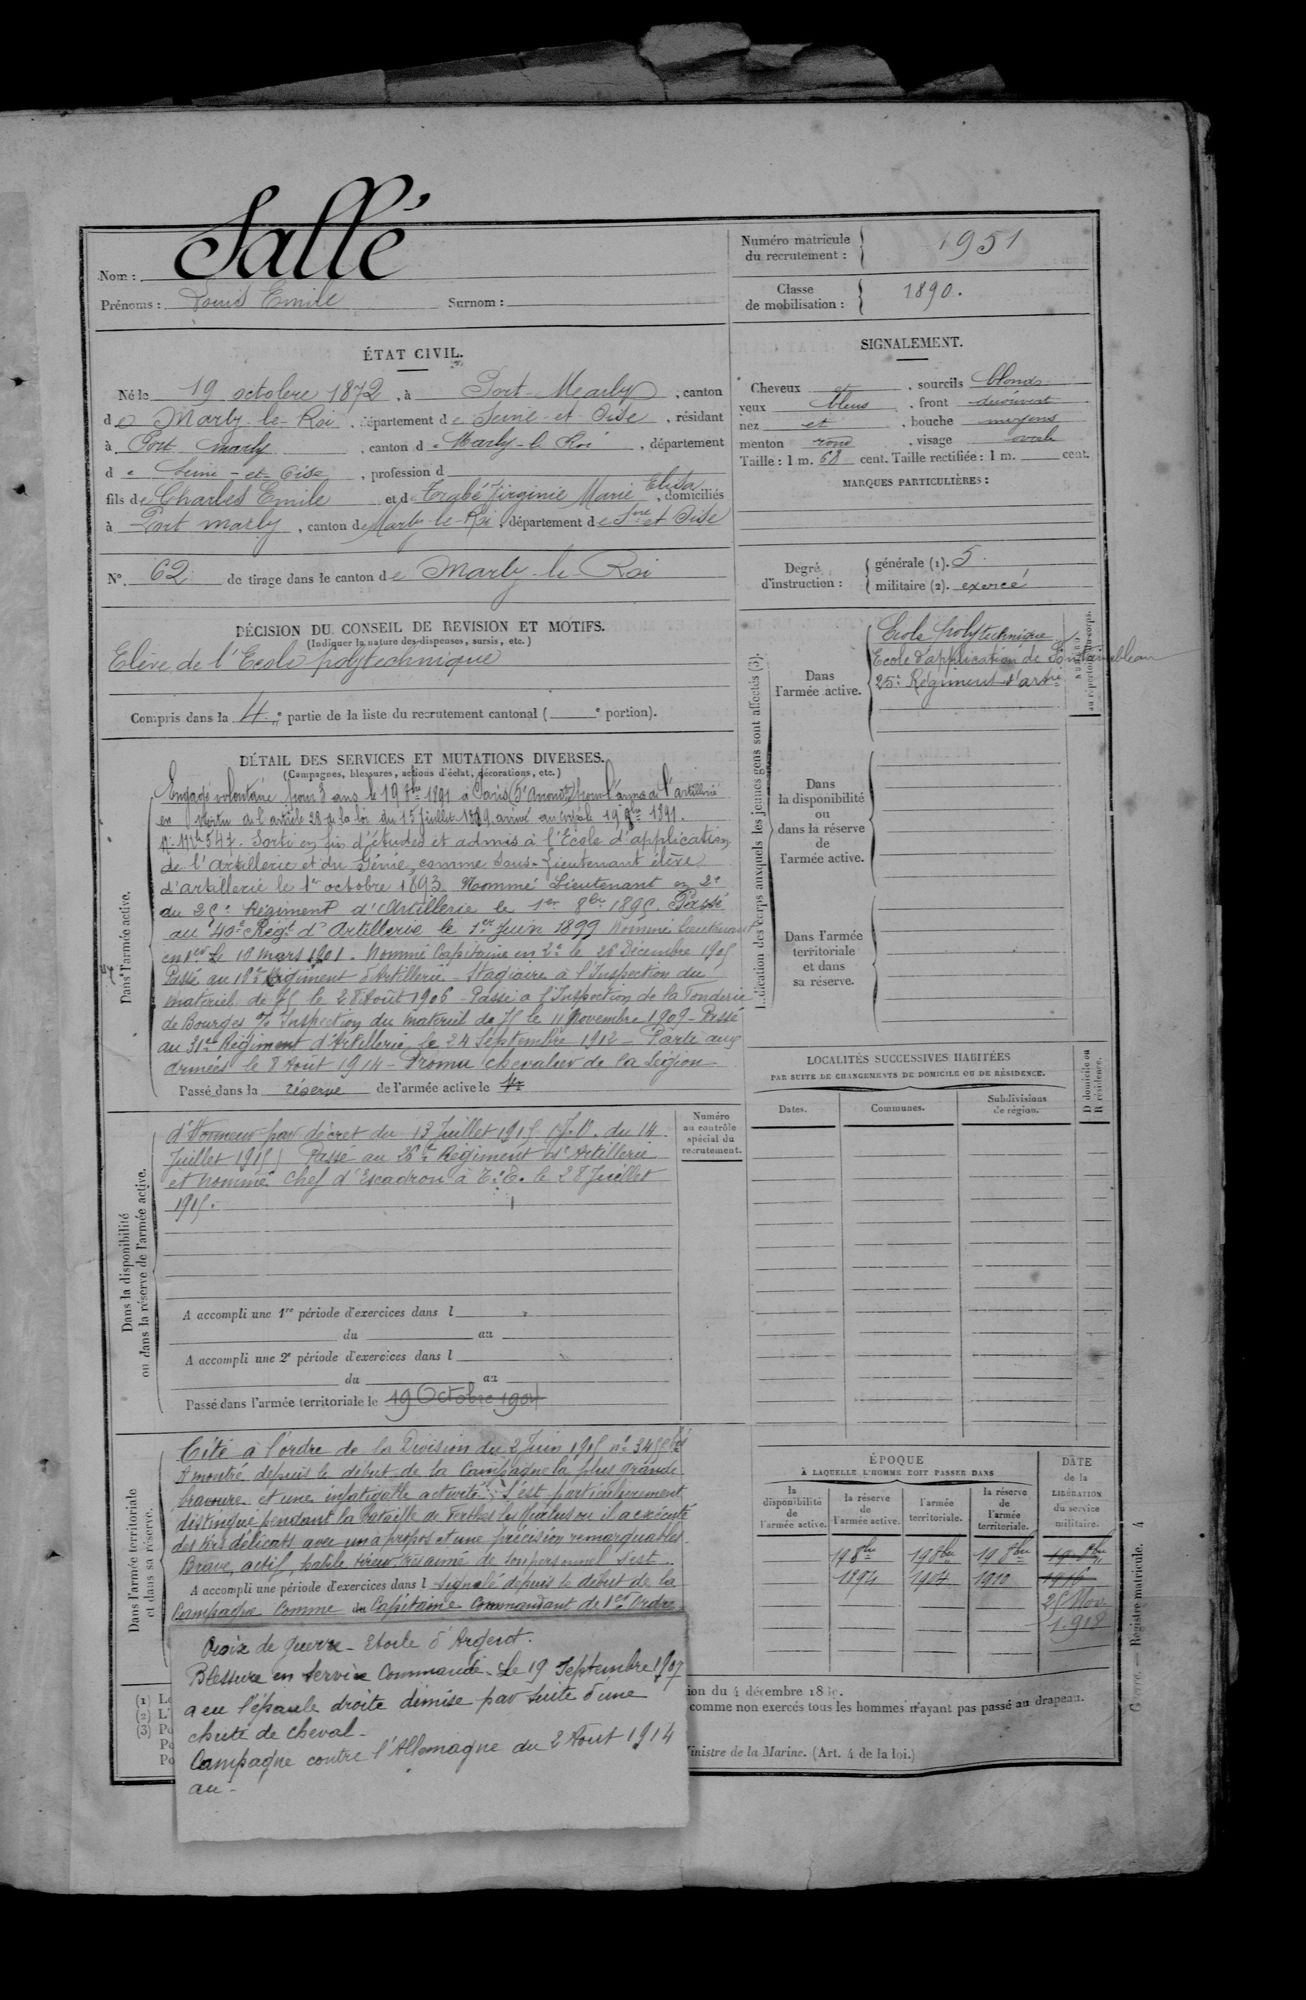 Nom : Sallé
Prénoms : Louis Emile Surnom :
Numéro matricule du recrutement : 1951
Classe de mobilisation : 1890.
ÉTAT CIVIL.
Né le 19 octobre 1872, à Port-Marly, canton
de Marly-le-Roi, département de Seine-et-Oise, résidant
à Port-Marly, canton de Marly-le-Roi, département
de Seine-et-Oise, profession d
fils de Charles Emile et de Virginie Marie Elisa, domiciliés
à Port marly, canton de Marly-le-Roi, département de Sne et Oise
N° 62 de tirage dans le canton de Marly-le-Roi
SIGNALEMENT.
Cheveux et, sourcils blonds
yeux bleus, front découvert
nez et, bouche moyens
menton rond, visage ovale
Taille : 1 m. 68 cent. Taille rectifiée : 1 m. cent.
MARQUES PARTICULIÈRES :
Degré d'instruction : générale (1). 5.
militaire (2). exercé
DÉCISION DU CONSEIL DE REVISION ET MOTIFS.
(Indiquer la nature des dispenses, sursis, etc.)
Elève de l'Ecole polytechnique
Compris dans la 4e partie de la liste du recrutement cantonal ( e portion).
DÉTAIL DES SERVICES ET MUTATIONS DIVERSES.
(Campagnes, blessures, actions d'éclat, décorations, etc.)
Dans l'armée active.
Engagé volontaire pour 3 ans le 19 8bre 1891 à Paris (5e Arrondt) pour l'arme de l'artillerie
en vertu de l'article 28 de la loi du 15 juillet 1889, arrivé au corps le 19 8bre 1891.
n° Mle 547. Sorti en fin d'études et admis à l'Ecole d'application
de l'Artillerie et du Génie, comme Sous-Lieutenant élève
d'artillerie le 1er octobre 1893. Nommé Lieutenant en 2e
du 25e Régiment d'Artillerie le 1er 8bre 1895. Passé
au 40e Régt d'Artillerie le 1er Juin 1899 Nommé Lieutenant
en 1er le 10 mars 1901. Nommé Capitaine en 2e le 26 Décembre 1905
Passé au 18e Régiment d'Artillerie - Stagiaire à l'Inspection du
matériel de 75 le 28 Août 1906 - Passé à l'Inspection de la Fonderie
de Bourges % Inspection du matériel de 75 le 11 Novembre 1909 - Passé
au 31e Régiment d'Artillerie le 24 Septembre 1912 - Parti aux
armées le 8 Août 1914 - Promu chevalier de la Légion
Passé dans la réserve de l'armée active le 1er
Dans la disponibilité ou dans la réserve de l'armée active.
d'Honneur par décret du 13 Juillet 1915 (J.O. du 14
Juillet 1915) Passé au Régiment d'Artillerie
et nommé Chef d'Escadron à T.T. le 28 Juillet
1915.
Numéro au contrôle spécial du recrutement.
A accompli une 1re période d'exercices dans l
du au
A accompli une 2e période d'exercices dans l
du au
Passé dans l'armée territoriale le 19 Octobre 1904
Dans l'armée territoriale et dans sa réserve.
Cité à l'ordre de la Division du 2 Juin 1915
A montré depuis le début de la Campagne la plus grande
bravoure et une infatigable activité, s'est particulièrement
distingué pendant la Bataille de Perthes les Hurlus où il a exécuté
des tirs délicats avec un à propos et une précision remarquables.
Brave, actif, habile tireur très aimé de son personnel s'est
A accompli une période d'exercices dans l signalé depuis le début de la
Campagne comme Capitaine Commandant de 1er Ordre
Croix de guerre - Etoile d'Argent.
Blessure en Service Commandé - Le 19 Septembre 1907
a eu l'épaule droite démise par suite d'une
chute de cheval -
Campagne contre l'Allemagne du 2 Août 1914
au -
Indication des corps auxquels les jeunes gens sont affectés (3).
NUMÉRO au répertoire du corps.
Dans l'armée active.
Ecole polytechnique
Ecole d'application de Fontainebleau
25e Régiment d'artie
Dans la disponibilité ou dans la réserve de l'armée active.
Dans l'armée territoriale et dans sa réserve.
LOCALITÉS SUCCESSIVES HABITÉES
PAR SUITE DE CHANGEMENTS DE DOMICILE OU DE RÉSIDENCE.
Dates. Communes. Subdivisions de région. D domicile ou R résidence.
ÉPOQUE
À LAQUELLE L'HOMME DOIT PASSER DANS
la disponibilité de l'armée active. la réserve de l'armée active. l'armée territoriale. la réserve de l'armée territoriale. DATE de la LIBÉRATION du service militaire.
19 8bre 19 8bre 19 8bre 19 8bre
1894 1904 1910 1916
25 Nov
1.918
(1) Le
(2) L'
(3) Po
Po
Po
ion du 4 décembre 18
comme non exercés tous les hommes n'ayant pas passé au drapeau.
Ministre de la Marine. (Art. 4 de la loi.)
Guerre. — Registre matricule. 4